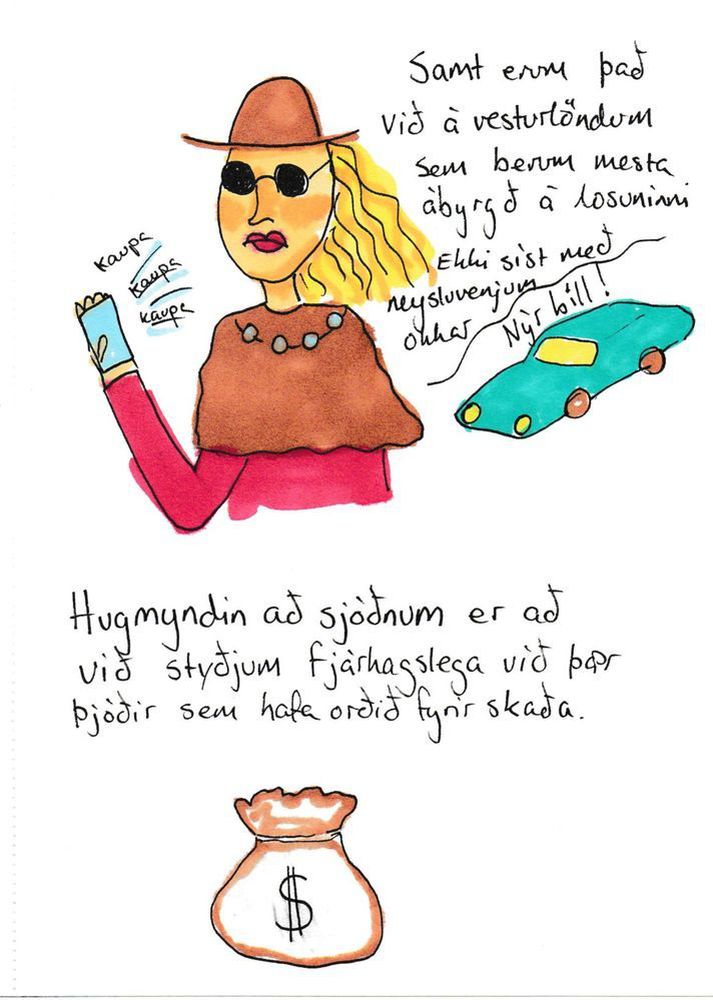 Samt erum það
við á vesturlöndum
sem berum mesta
ábyrgð á losuninni
Ekki síst með
neysluvenjum
okkar
Nýr bíll!
kaupa
kaupa
kaupa
Hugmyndin að sjóðnum er að
við styðjum fjárhagslega við þær
þjóðir sem hafa orðið fyrir skaða.
$